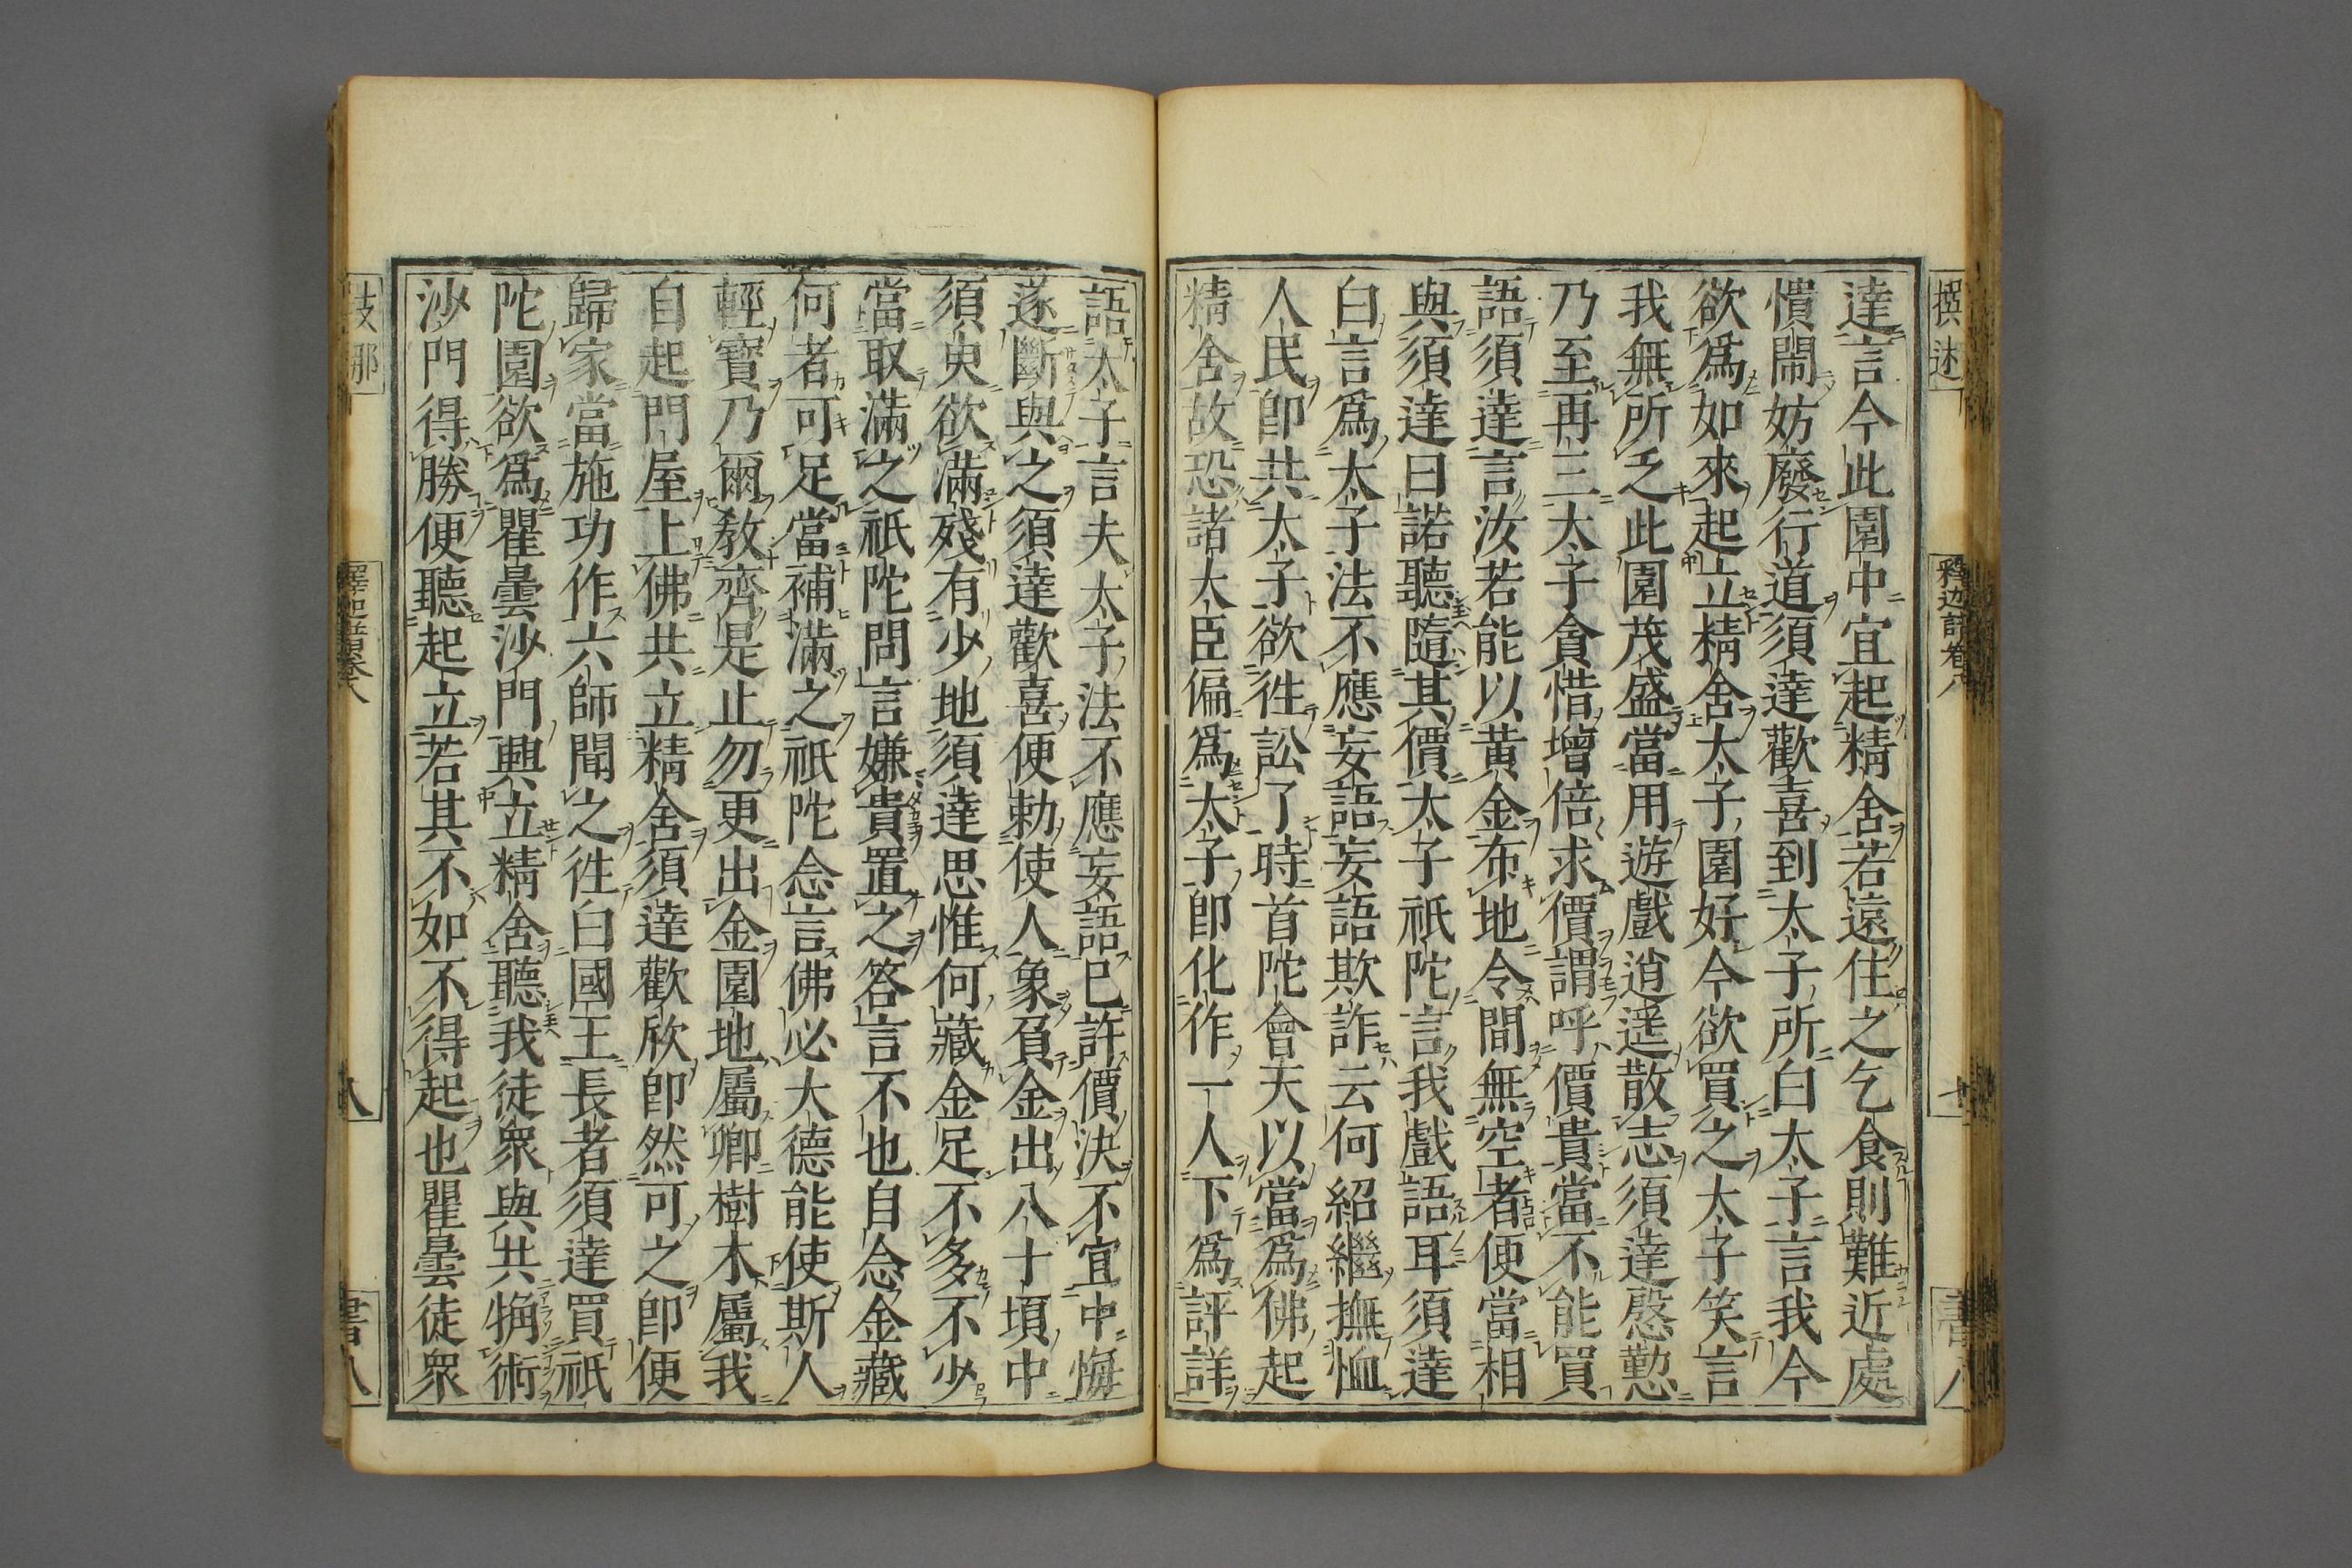 達言今此園中宜起精舍若遠住之乞食則難近處
憒閙妨廢行道須達歡喜到太子所白太子言我今
欲爲如來起立精舍太子園好今欲買之太子笑言
我無所乏此園茂盛當用遊戲逍遥散志須達慇懃
乃至再三太子貪惜增倍求價謂呼價貴當不能買
語須達言汝若能以黃金布地令間無空者便當相
與須達曰諾聽隨其價太子祇陀言我戲語耳須達
白言爲太子法不應妄語妄語欺詐云何紹繼撫恤
人民卽共太子欲徃訟了時首陀會天以當爲佛起
精舍故恐諸大臣偏爲太子卽化作一人下爲評詳
語太子言夫太子法不應妄語已許價決不宜中悔
遂斷與之須達歡喜便勅使人象負金出八十頃中
須臾欲滿殘有少地須達思惟何藏金足不多不少
當取滿之祇陀問言嫌貴置之答言不也自念金藏
何者可足當補滿之祇陀念言佛必大德能使斯人
輕寶乃爾敎齊是止勿更出金園地屬卿樹木屬我
自起門屋上佛共立精舍須達歡欣卽然可之卽便
歸家當施功作六師聞之徃白國王長者須達買祇
陀園欲爲瞿曇沙門興立精舍聽我徒衆與共捔術
沙門得勝便聽起立若其不如不得起也瞿曇徒衆